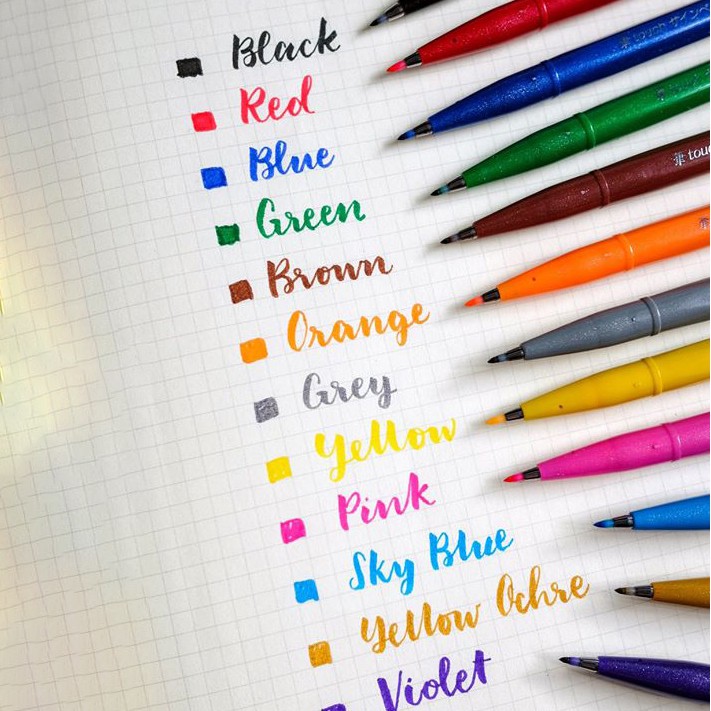 Black
Red
Blue
Green
Brown
Orange
Grey
Yellow
Pink
Sky Blue
Yellow Ochre
Violet
touch サインペン
touch